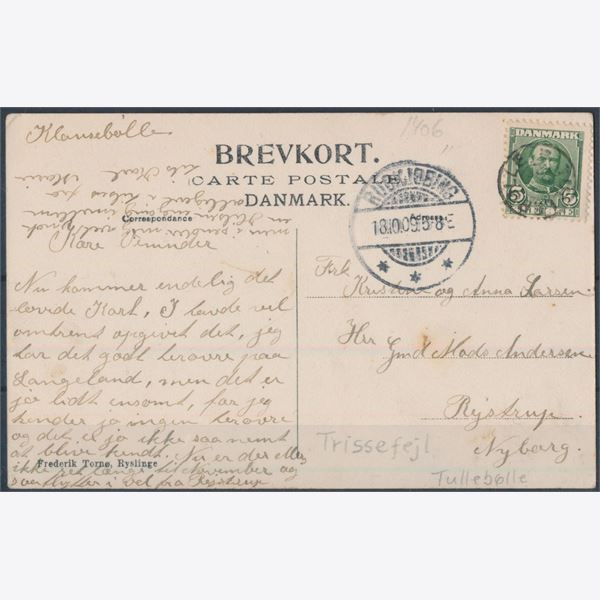 Klausebølle
1406
BREVKORT.
CARTE POSTALE
DANMARK.
Correspondance
Adresse
RUDKJØBING
18.10.09. 5-8 E
DANMARK
5
Kære Veninder
Nu kommer endelig det
lovede Kort, I havde vel
omtrent opgivet det, jeg
har det godt herovre paa
Langeland, men det er
jo lidt ensomt, for jeg
kender jo ingen herovre
og det er jo ikke saa nemt
at blive kendt. Nu er der ellers
ikke ret længe til November og
saa flytter i vel fra Rejstrup
Frk
Kristine og Anna Larsen
Hr Gmd Mads Andersen
Rejstrup
Nyborg.
Trissefejl
Tullebølle
Frederik Tornø, Ryslinge